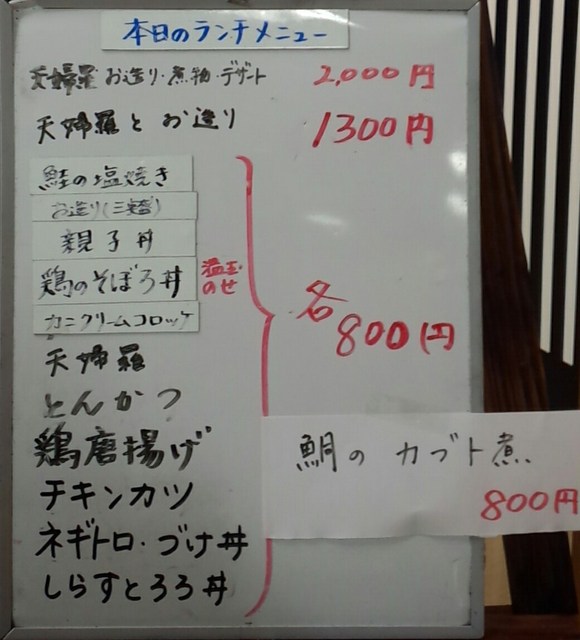 本日のランチメニュー
天婦羅 お造り・煮物・デザート 2,000円
天婦羅と お造り 1300円
鮭の塩焼き
お造り(三種)
親子丼
鶏のそぼろ丼 温玉のせ
カニクリームコロッケ
天婦羅
とんかつ
鶏唐揚げ
チキンカツ
ネギトロ・づけ丼
しらすとろろ丼
各800円
鯛のカブト煮
800円